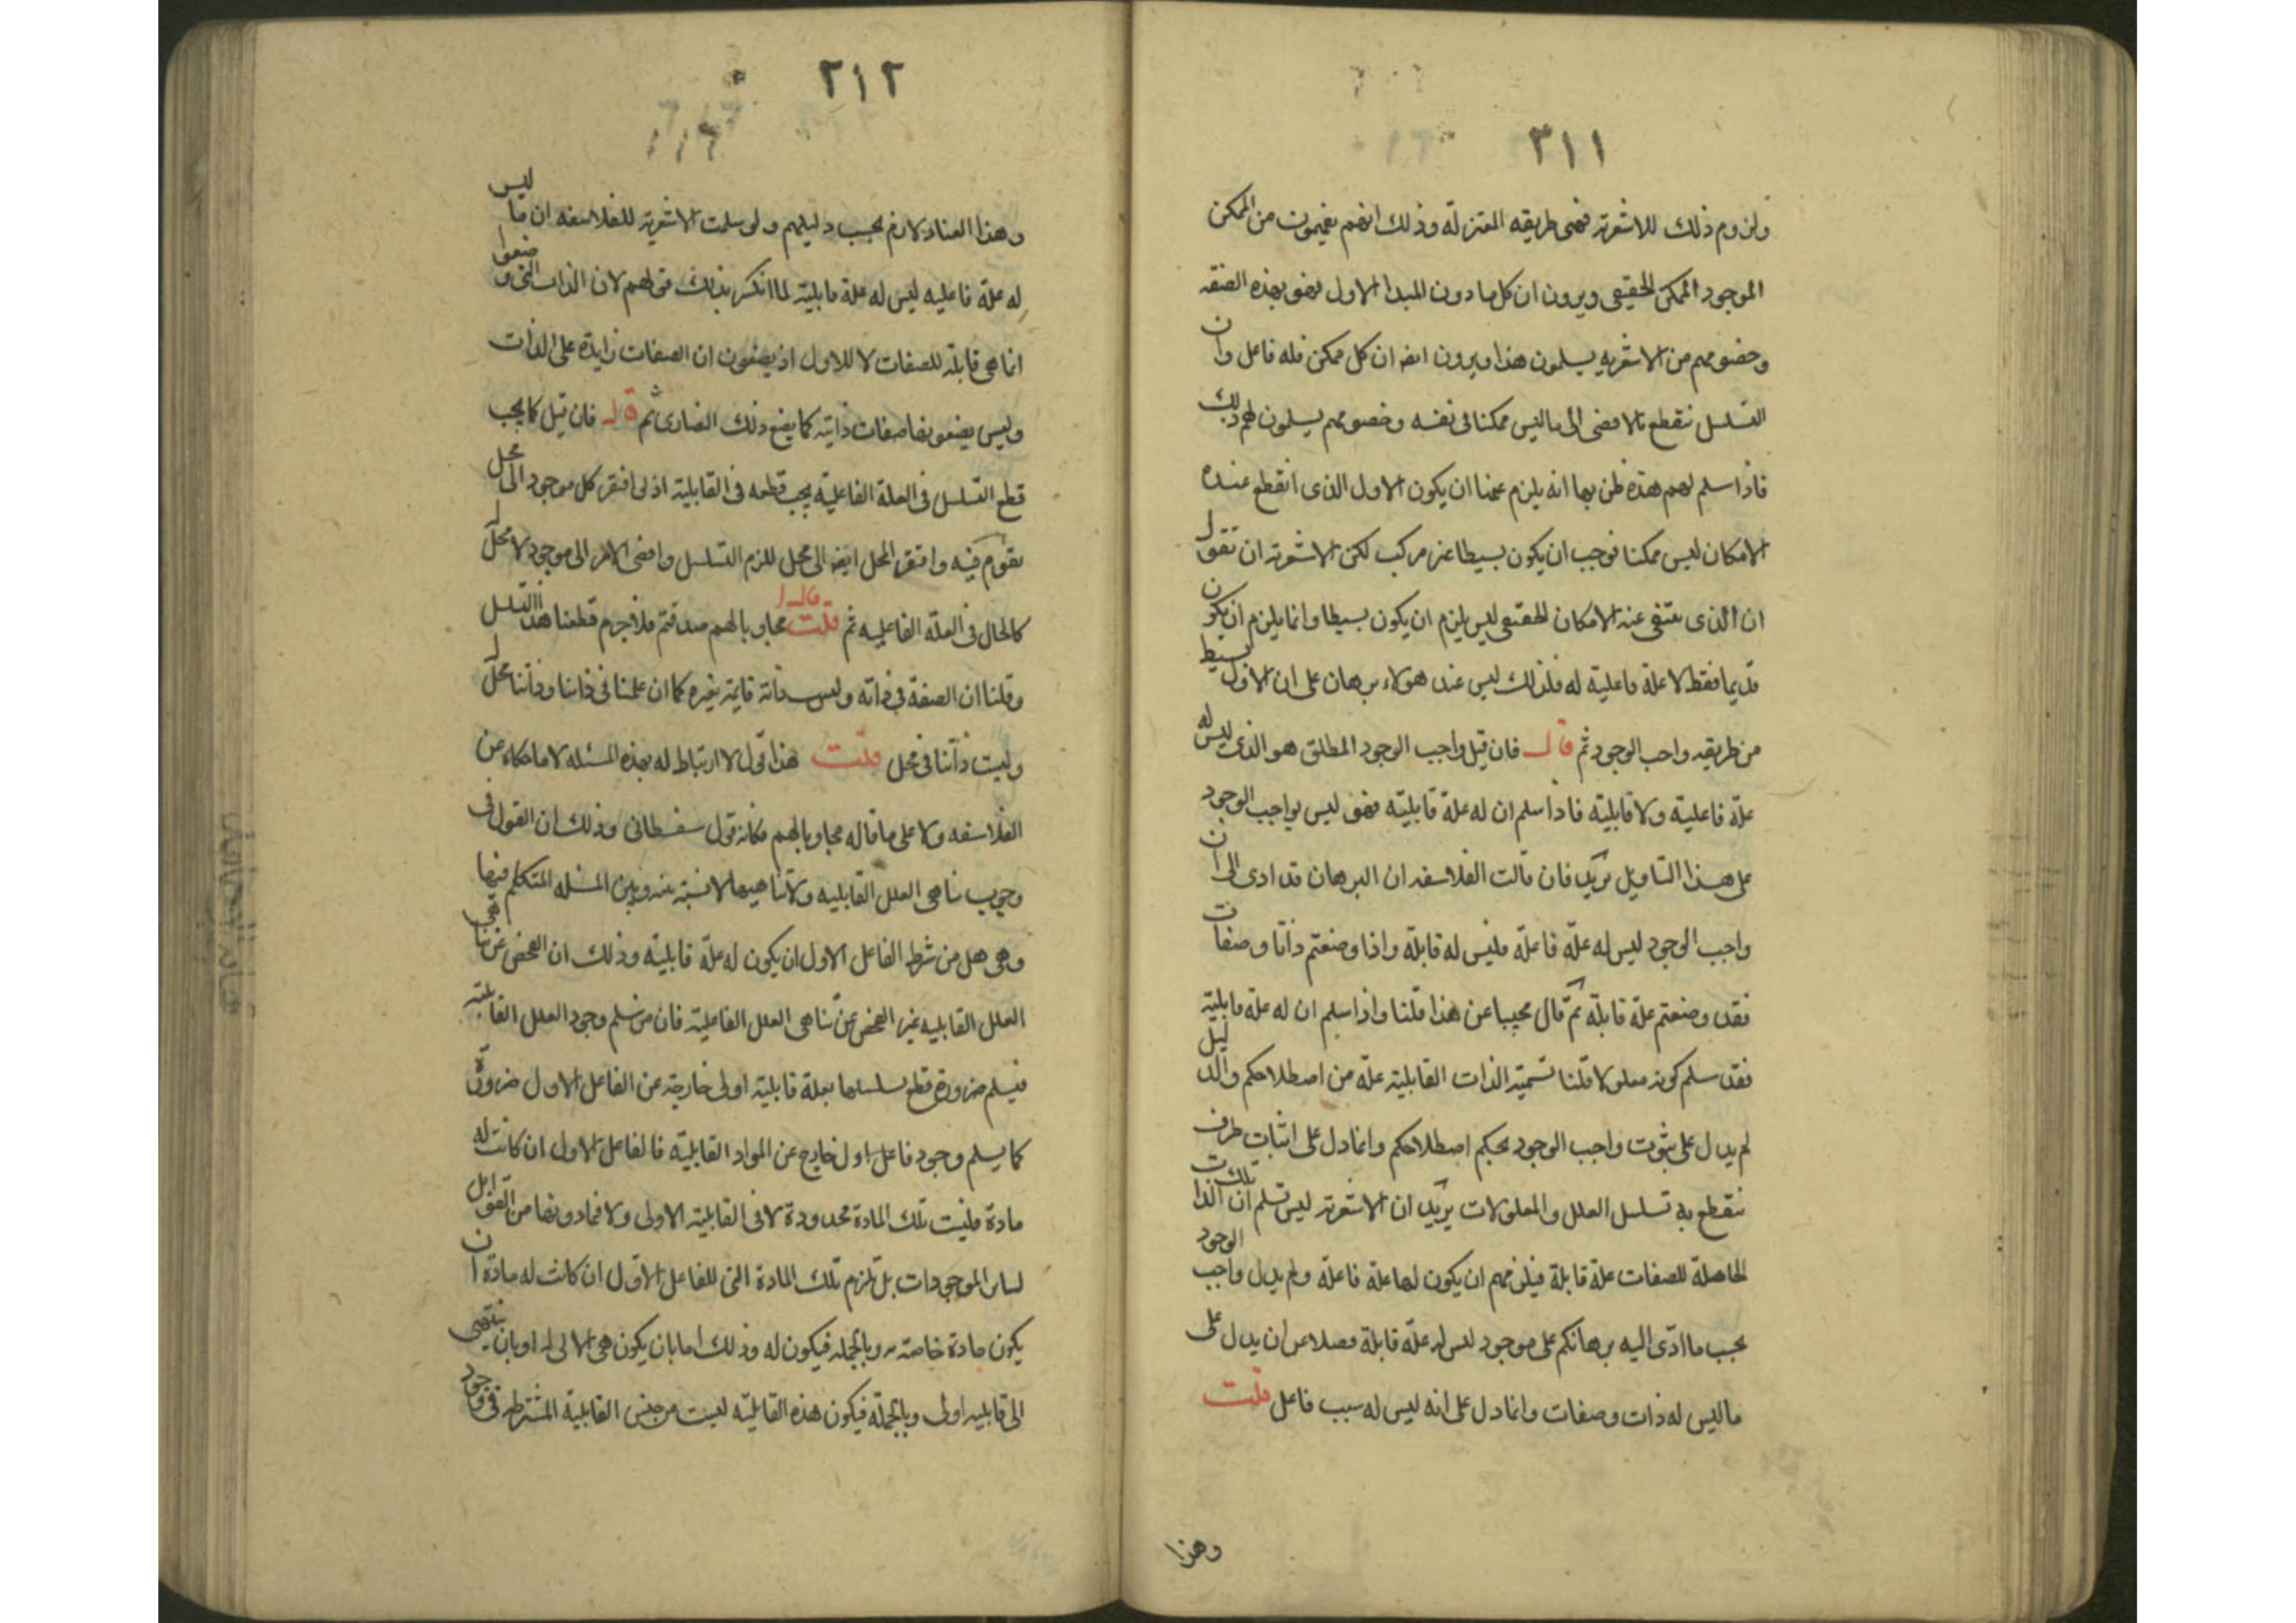 ٣١١
ولزوم ذلك للاشعرية فهى طريقه المعتزلة وذلك انهم يفهمون من الممكن
الموجود الممكن الحقيقى ويرون ان كل ما دون المبدا الاول فهو بهذه الصفه
وخصومهم من الاشعريه يسلمون هذا ويرون ايضا ان كل ممكن فله فاعل وان
التسلسل ينقطع بالافضى الى ما ليس ممكنا فى نفسه وخصومهم يسلمون لهم ذلك
فاذا سلم لهم هذه ظن بها انه يلزم عنها ان يكون الاول الذى انقطع عنده
الامكان ليس ممكنا فوجب ان يكون بسيطا غير مركب لكن الاشعرية ان تقول
ان الذى ينتفى عنه الامكان الحقيقى ليس يلزم ان يكون بسيطا وانما يلزم ان يكون
قديما فقط لا علة فاعلية له فلذلك ليس عند هولاء برهان على ان الاول بسيط
من طريقه واجب الوجود ثم قال فان قيل واجب الوجود المطلق هو الذى ليس له
علة فاعلية ولا قابلية فاذا سلم ان له علة قابلية فهو ليس بواجب الوجود
على هذا التاويل يريد فان قالت الفلاسفه ان البرهان قد ادى الى ان
واجب الوجود ليس له علة فاعلة فليس له قابلة واذا وضعتم ذاتا وصفات
فقد وضعتم علة قابلة ثم قال مجيبا عن هذا قلنا واذا سلم ان له علة قابلية
فقد سلم كونه معلولا قلنا تسمية الذات القابلية علة من اصطلاحكم والدليل
لم يدل على ثبوت واجب الوجود بحكم اصطلاحكم وانما دل على اثبات طرف
ينقطع به تسلسل العلل والمعلولات يريد ان الاشعرية ليس تسلم ان تلك الذات
الحاملة للصفات علة قابلة فيلزمهم ان يكون لها علة فاعلة ولم يدل واجب الوجود
بحسب ما ادى اليه برهانكم على موجود ليس له علة قابلة فضلا عن ان يدل على
ما ليس له ذات وصفات وانما دل على انه ليس له سبب فاعل قلت
وهذا
٢١٢
وهذا العناد لازم بحسب دليلهم ولو سلمت الاشعرية للفلاسفه ان ما ليس
له علة فاعليه ليس له علة قابلية لما انكسر بذلك قولهم لان الذات التى وضعوا
انما هى قابلة للصفات لا للاول اذ يضعون ان الصفات زايدة على الذات
وليس يضعونها صفات ذاتية كما يضع ذلك النصارى ثم قال فان قيل كما يجب
قطع التسلسل فى العلة الفاعلية يجب قطعه فى القابلية اذ لو افتقر كل موجود الى محل
يقوم فيه وافتقر المحل ايضا الى محل للزم التسلسل وافضى الامر الى موجود لا محل له
كالحال فى العلة الفاعليه ثم قال قلت مجاوبا لهم صدقتم فلا جرم قطعنا هذا التسلسل
وقلنا ان الصفة فى ذاته وليس ذاته قايمة بغيره كما ان علمنا فى ذاتنا وذاتنا محل له
وليست ذاتنا فى محل قلت هذا قول لا ارتباط له بهذه المسئله لا ما حكاه عن
الفلاسفه ولا على ما قاله مجاوبا لهم فكانه قول سفسطانى وذلك ان القول فى
وجوب تناهى العلل القابليه ولا تناهيها لا نسبة بينه وبين المسئله المتكلم فيها
وهى هل من شرط الفاعل الاول ان يكون له علة قابلية وذلك ان الفحص عن تناهى
العلل القابليه غير الفحص عن تناهى العلل الفاعلية فان من سلم وجود العلل القابلية
فيسلم ضرورة قطع سلسلها بعلة قابلية اولى خارجة عن الفاعل الاول ضرورة
كما يسلم وجود فاعل اول خارج عن المواد القابلية فالفاعل الاول ان كانت له
مادة فليست تلك المادة محدودة لا فى القابلية الاولى ولا فيما دونها من القوابل
لساير الموجودات بل تلزم تلك المادة التى للفاعل الاول ان كانت له مادة ان
يكون مادة خاصة به وبالجمله فيكون له وذلك اما بان يكون هى الاولى له او بان ينتهى
الى قابليه اولى وبالجملة فيكون هذه القابلية ليست من جنس القابلية المشترطه فى وجود